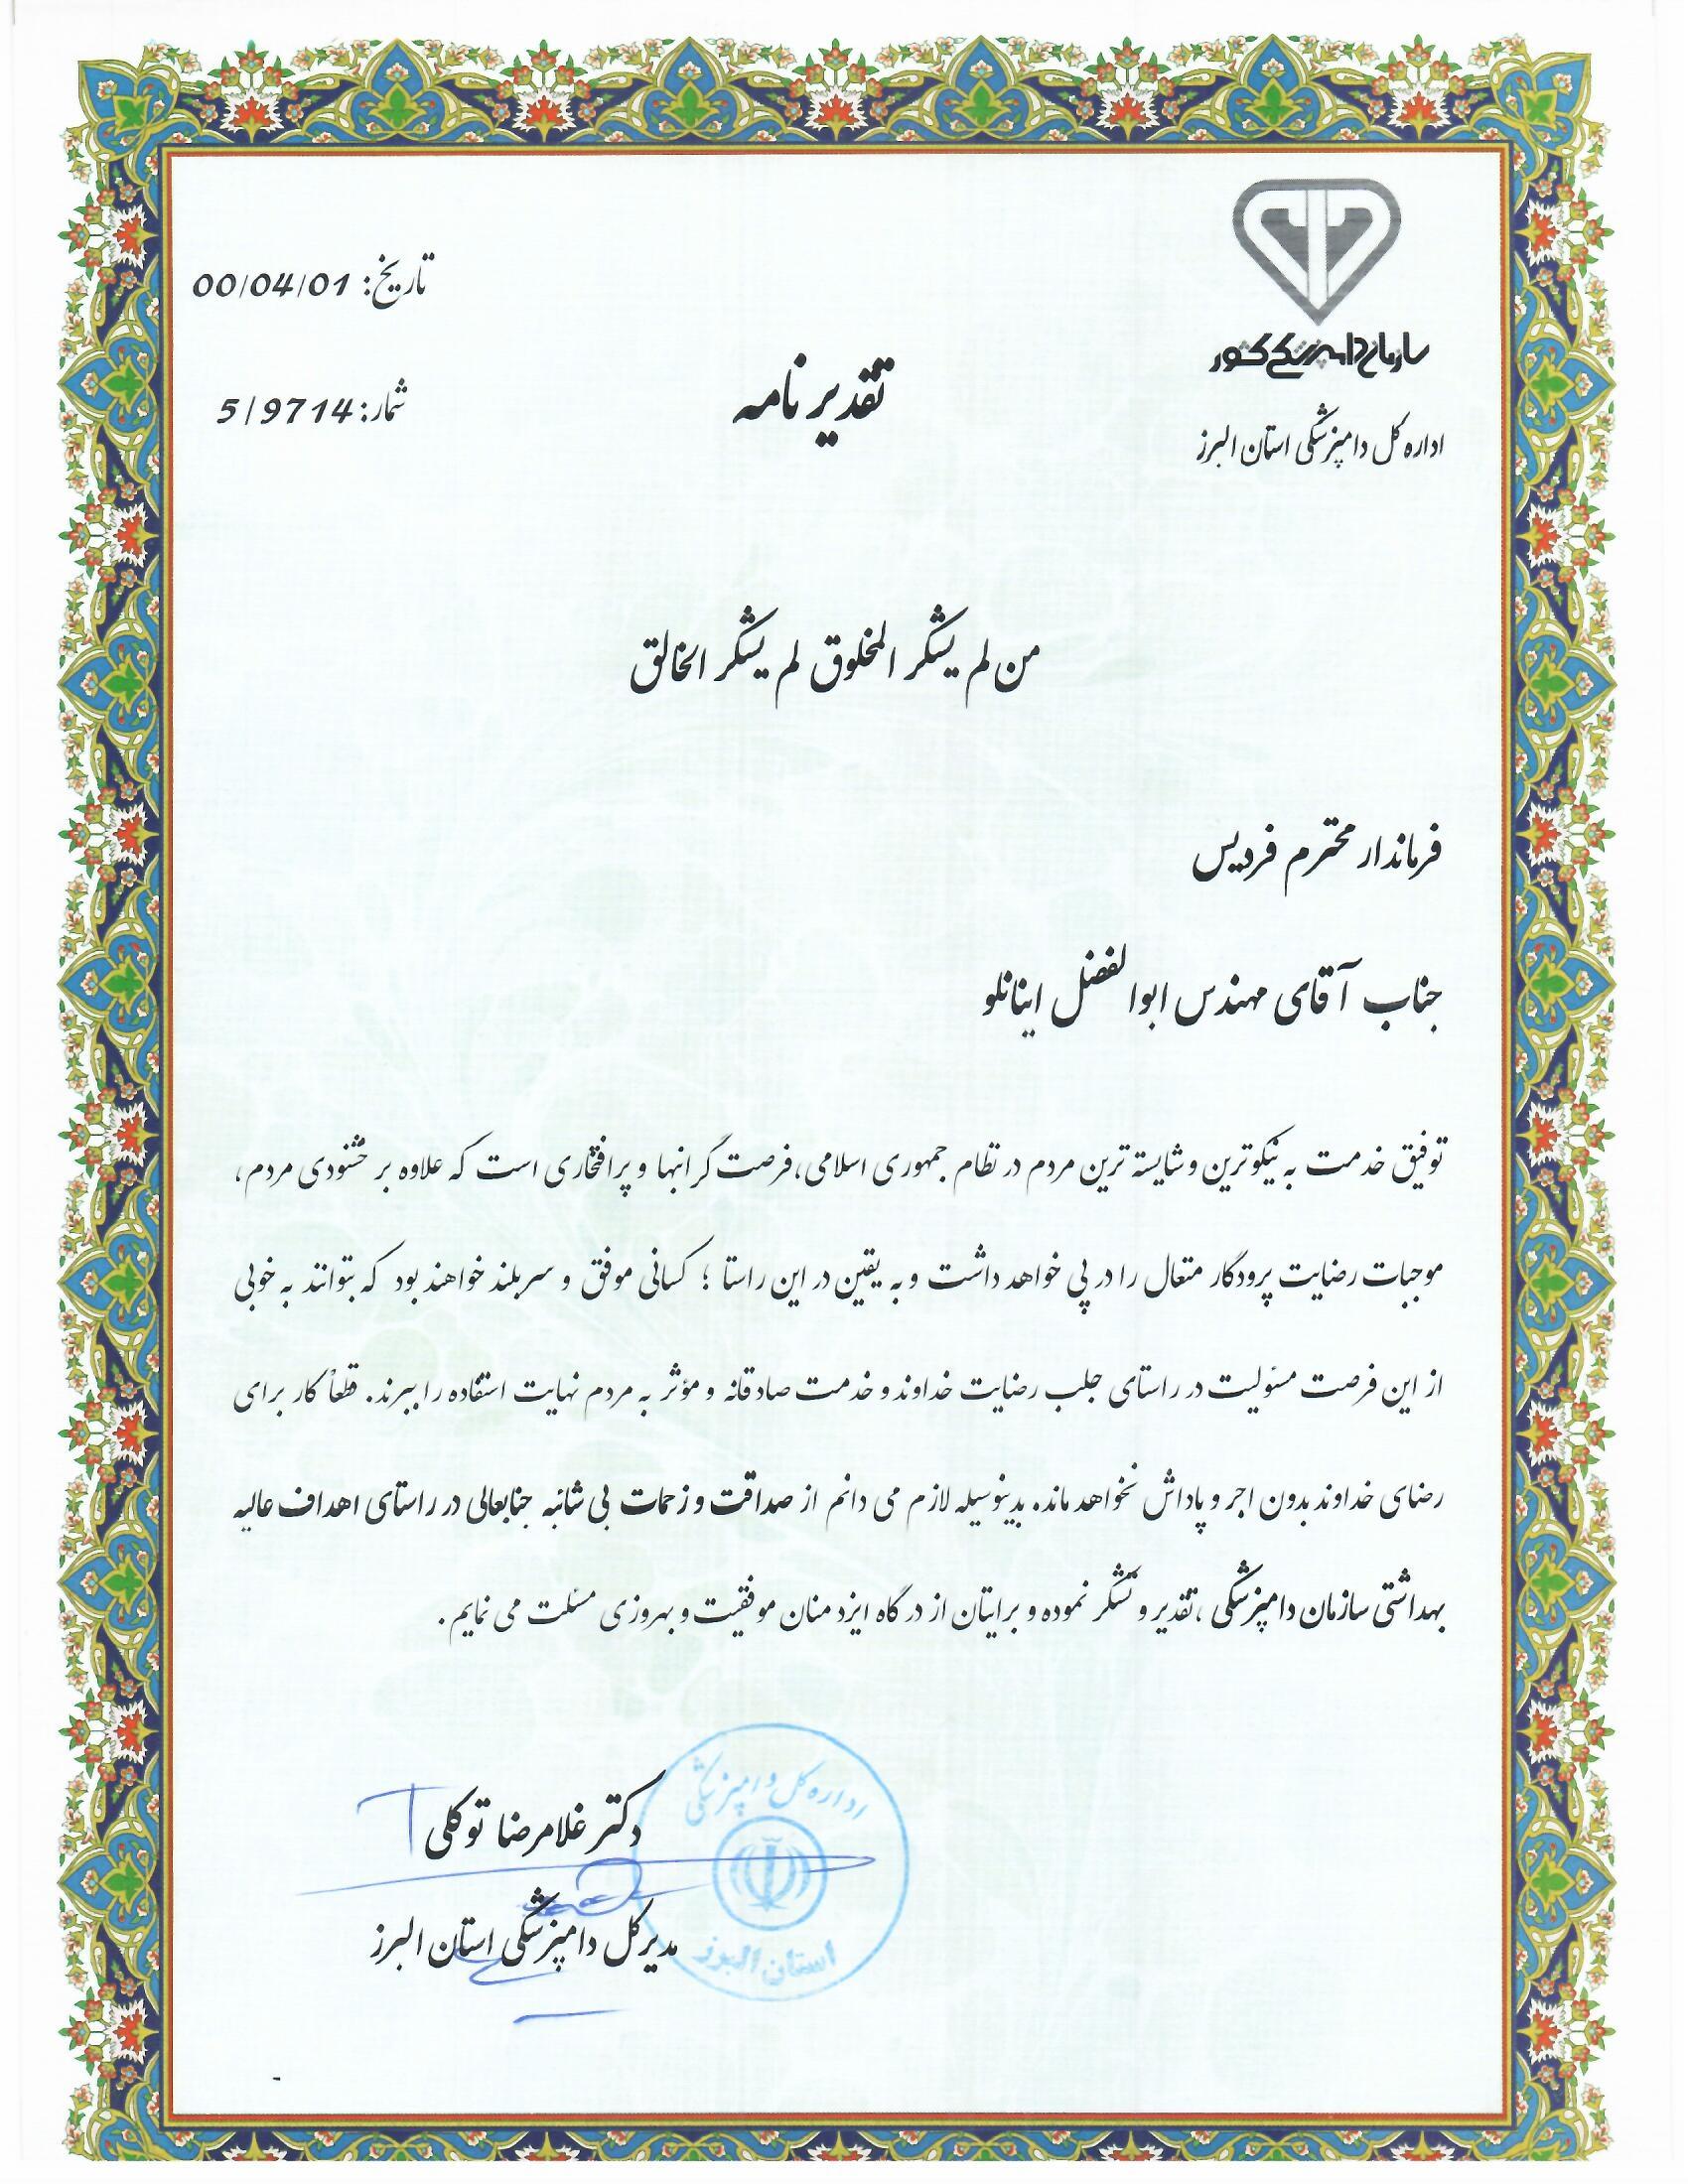 سازمان دامپزشکی کشور
اداره کل دامپزشکی استان البرز
تاریخ: 00/04/01
شمار: 5/9714
تقدیر نامه
من لم یشکر المخلوق لم یشکر الخالق
فرماندار محترم فردیس
جناب آقای مهندس ابوالفضل اینانلو
توفیق خدمت به نیکوترین و شایسته ترین مردم در نظام جمهوری اسلامی، فرصت گرانبها و پرافتخاری است که علاوه بر خشنودی مردم،
موجبات رضایت پرودگار متعال را در پی خواهد داشت و به یقین در این راستا ؛ کسانی موفق و سربلند خواهند بود که بتوانند به خوبی
از این فرصت مسئولیت در راستای جلب رضایت خداوند و خدمت صادقانه و مؤثر به مردم نهایت استفاده را ببرند. قطعاً کار برای
رضای خداوند بدون اجر و پاداش نخواهد ماند. بدینوسیله لازم می دانم از صداقت و زحمات بی شائبه جنابعالی در راستای اهداف عالیه
بهداشتی سازمان دامپزشکی ، تقدیر و تشکر نموده و برایتان از درگاه ایزد منان موفقیت و بهروزی مسئلت می نمایم.
دکتر غلامرضا توکلی
مدیرکل دامپزشکی استان البرز
اداره کل دامپزشکی
استان البرز